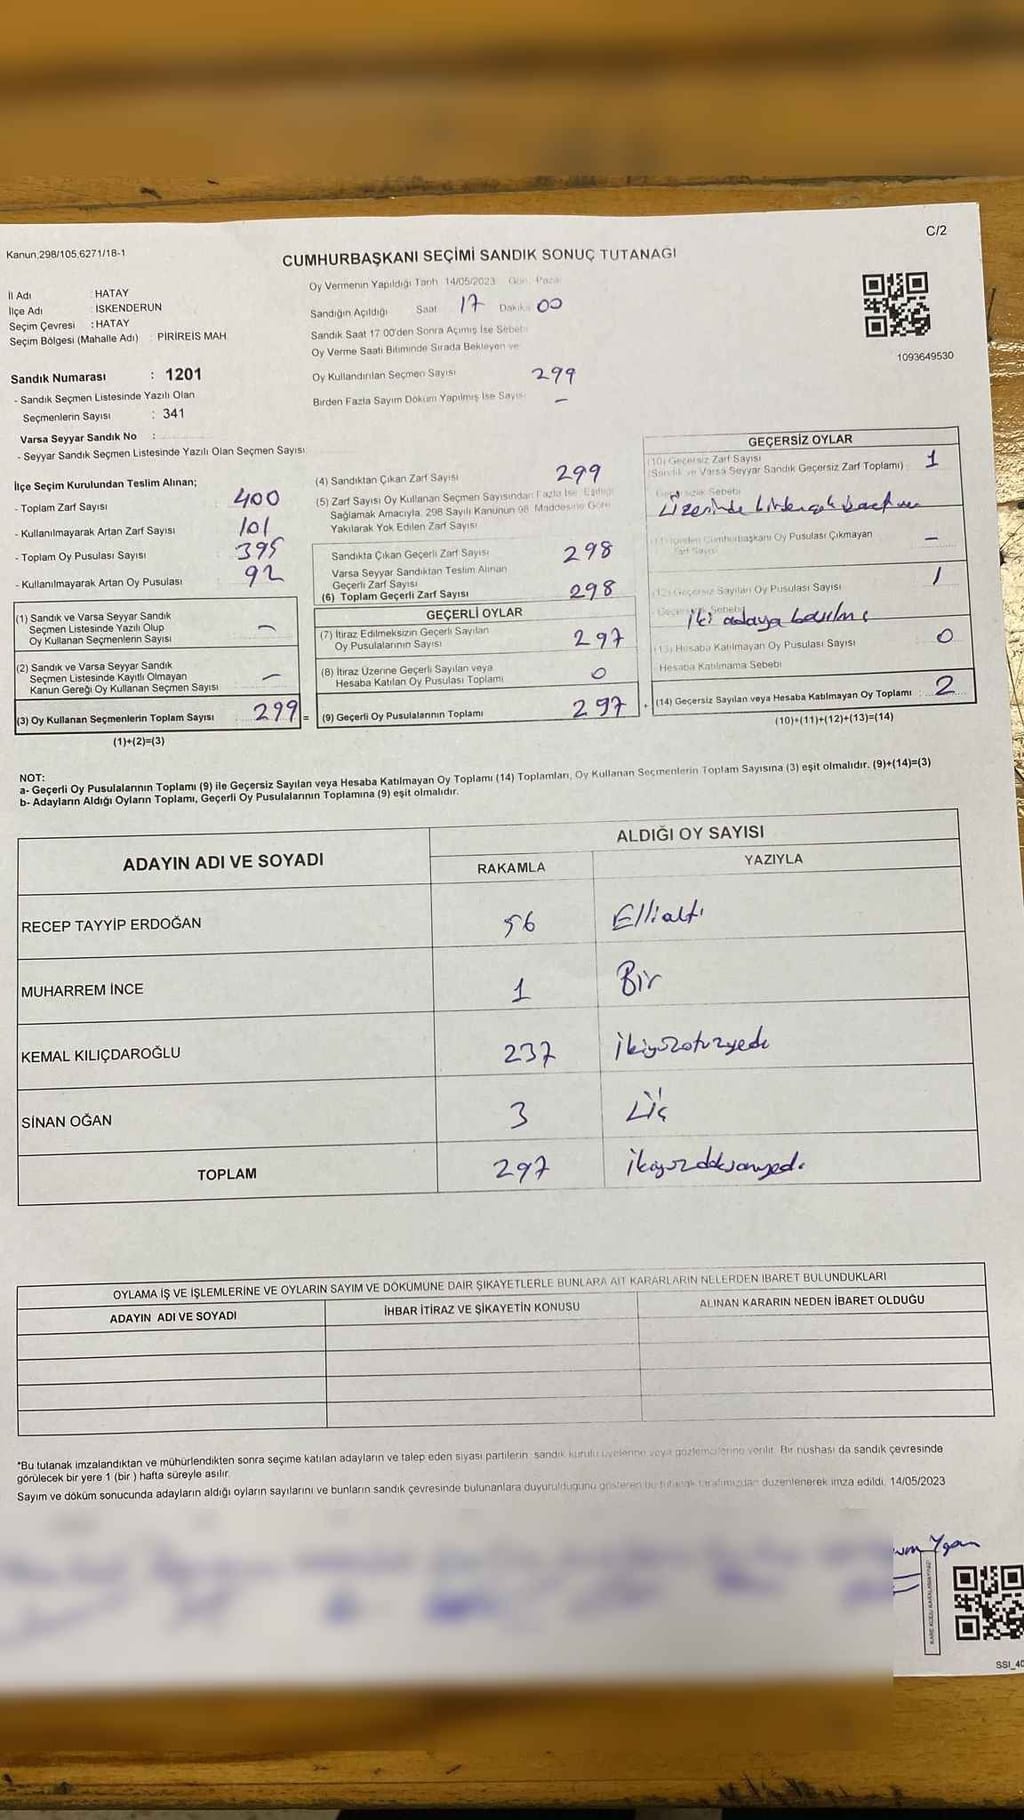 C/2
Kanun,298/105,6271/18-1
CUMHURBAŞKANI SEÇİMİ SANDIK SONUÇ TUTANAĞI
Oy Vermenin Yapıldığı Tarih 14/05/2023 Gün: Pazar
İl Adı : HATAY
İlçe Adı : İSKENDERUN
Seçim Çevresi : HATAY
Seçim Bölgesi (Mahalle Adı) : PİRİREİS MAH
Sandığın Açıldığı Saat 17 Dakika 00
Sandık Saat 17.00'den Sonra Açımış İse Sebebi
Oy Verme Saati Bitiminde Sırada Bekleyen ve
Oy Kullandırılan Seçmen Sayısı 299
Birden Fazla Sayım Döküm Yapılmış İse Sayısı –
1093649530
Sandık Numarası : 1201
- Sandık Seçmen Listesinde Yazılı Olan
Seçmenlerin Sayısı : 341
Varsa Seyyar Sandık No :
- Seyyar Sandık Seçmen Listesinde Yazılı Olan Seçmen Sayısı
İlçe Seçim Kurulundan Teslim Alınan;
- Toplam Zarf Sayısı 400
- Kullanılmayarak Artan Zarf Sayısı 101
- Toplam Oy Pusulası Sayısı 395
- Kullanılmayarak Artan Oy Pusulası 92
(1) Sandık ve Varsa Seyyar Sandık
Seçmen Listesinde Yazılı Olup
Oy Kullanan Seçmenlerin Sayısı –
(2) Sandık ve Varsa Seyyar Sandık
Seçmen Listesinde Kayıtlı Olmayan
Kanun Gereği Oy Kullanan Seçmen Sayısı –
(3) Oy Kullanan Seçmenlerin Toplam Sayısı 299 =
(1)+(2)=(3)
(4) Sandıktan Çıkan Zarf Sayısı 299
(5) Zarf Sayısı Oy Kullanan Seçmen Sayısından Fazla İse Eşitliği
Sağlamak Amacıyla, 298 Sayılı Kanunun 98. Maddesine Göre
Yakılarak Yok Edilen Zarf Sayısı
Sandıkta Çıkan Geçerli Zarf Sayısı 298
Varsa Seyyar Sandıktan Teslim Alınan
Geçerli Zarf Sayısı
(6) Toplam Geçerli Zarf Sayısı 298
GEÇERLİ OYLAR
(7) İtiraz Edilmeksizin Geçerli Sayılan
Oy Pusulalarının Sayısı 297
(8) İtiraz Üzerine Geçerli Sayılan veya
Hesaba Katılan Oy Pusulası Toplamı 0
(9) Geçerli Oy Pusulalarının Toplamı 297 +
GEÇERSİZ OYLAR
(10) Geçersiz Zarf Sayısı
(Sandık ve Varsa Seyyar Sandık Geçersiz Zarf Toplamı) 1
Geçersizlik Sebebi
Üzerinde birden çok
(11) İçinden Cumhurbaşkanı Oy Pusulası Çıkmayan
Zarf Sayısı –
(12) Geçersiz Sayılan Oy Pusulası Sayısı 1
Geçersizlik Sebebi
İki adaya basılmış
(13) Hesaba Katılmayan Oy Pusulası Sayısı 0
Hesaba Katılmama Sebebi
(14) Geçersiz Sayılan veya Hesaba Katılmayan Oy Toplamı 2
(10)+(11)+(12)+(13)=(14)
NOT:
a- Geçerli Oy Pusulalarının Toplamı (9) ile Geçersiz Sayılan veya Hesaba Katılmayan Oy Toplamı (14) Toplamları, Oy Kullanan Seçmenlerin Toplam Sayısına (3) eşit olmalıdır. (9)+(14)=(3)
b- Adayların Aldığı Oyların Toplamı, Geçerli Oy Pusulalarının Toplamına (9) eşit olmalıdır.
ADAYIN ADI VE SOYADI ALDIĞI OY SAYISI
RAKAMLA YAZIYLA
RECEP TAYYİP ERDOĞAN 56 Ellialtı
MUHARREM İNCE 1 Bir
KEMAL KILIÇDAROĞLU 237 ikiyüzotuzyedi
SİNAN OĞAN 3 Üç
TOPLAM 297 ikiyüzdoksanyedi
OYLAMA İŞ VE İŞLEMLERİNE VE OYLARIN SAYIM VE DÖKÜMÜNE DAİR ŞİKAYETLERLE BUNLARA AİT KARARLARIN NELERDEN İBARET BULUNDUKLARI
ADAYIN ADI VE SOYADI İHBAR İTİRAZ VE ŞİKAYETİN KONUSU ALINAN KARARIN NEDEN İBARET OLDUĞU
*Bu tutanak imzalandıktan ve mühürlendikten sonra seçime katılan adayların ve talep eden siyasi partilerin sandık kurulu üyelerine veya gözlemcilerine verilir. Bir nüshası da sandık çevresinde
görülecek bir yere 1 (bir ) hafta süreyle asılır.
Sayım ve döküm sonucunda adayların aldığı oyların sayılarını ve bunların sandık çevresinde bulunanlara duyurulduğunu gösteren bu tutanak tarafımızdan düzenlenerek imza edildi. 14/05/2023
KARE KODU KARALAMAYINIZ!
SSI_40